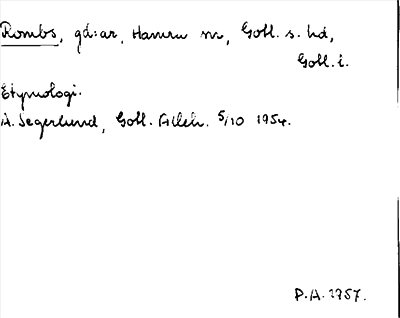 Rombs, gd:ar, Hamra sn, Gotl. s. hd,
Gotl. l.
Etymologi.
A. Segerlund, Gotl. Alleh. 5/10 1954.
P.A. 1957.